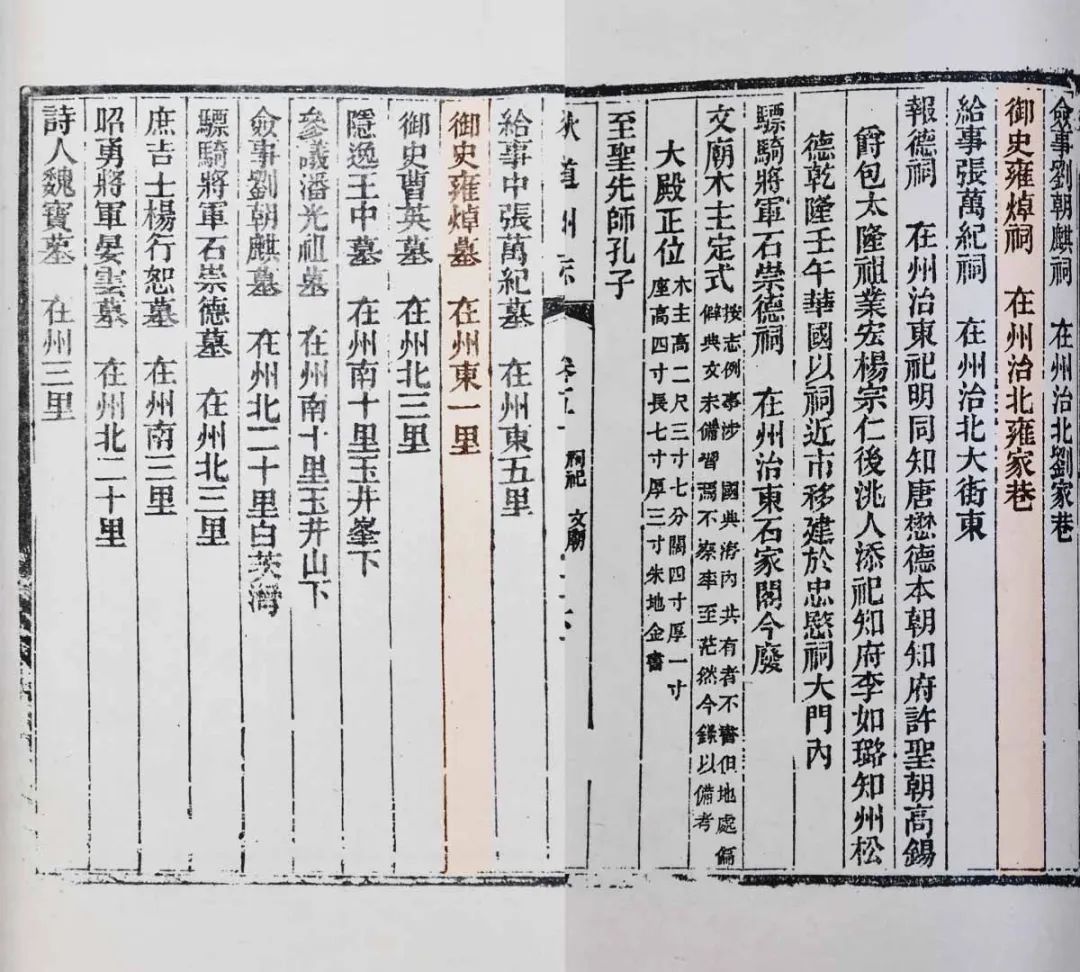 僉事劉朝麒祠　在州治北劉家巷
御史雍焯祠　在州治北雍家巷
給事張萬紀祠　在州治北大街東
報德祠　在州治東祀明同知唐懋德本朝知府許聖朝高錫
爵包太隆祖業宏楊宗仁後洮人添祀知府李如璐知州松
德乾隆壬午華國以祠近市移建於忠愍祠大門內
驃騎將軍石崇德祠　在州治東石家閣今廢
文廟木主定式
按志例事涉　國典海內共有者不書但地處偏
僻典文未備習焉不察率至茫然今錄以備考
大殿正位
木主高二尺三寸七分闊四寸厚一寸
座高四寸長七寸厚三寸朱地金書
至聖先師孔子
狄道州志
祠祀　文廟
給事中張萬紀墓　在州東五里
御史雍焯墓　在州東一里
御史曹英墓　在州北三里
隱逸王中墓　在州南十里玉井峯下
參議潘光祖墓　在州南十里玉井山下
僉事劉朝麒墓　在州北二十里白茨灣
驃騎將軍石崇德墓　在州北三里
庶吉士楊行恕墓　在州南三里
昭勇將軍晏雲墓　在州北二十里
詩人魏寶墓　在州三里